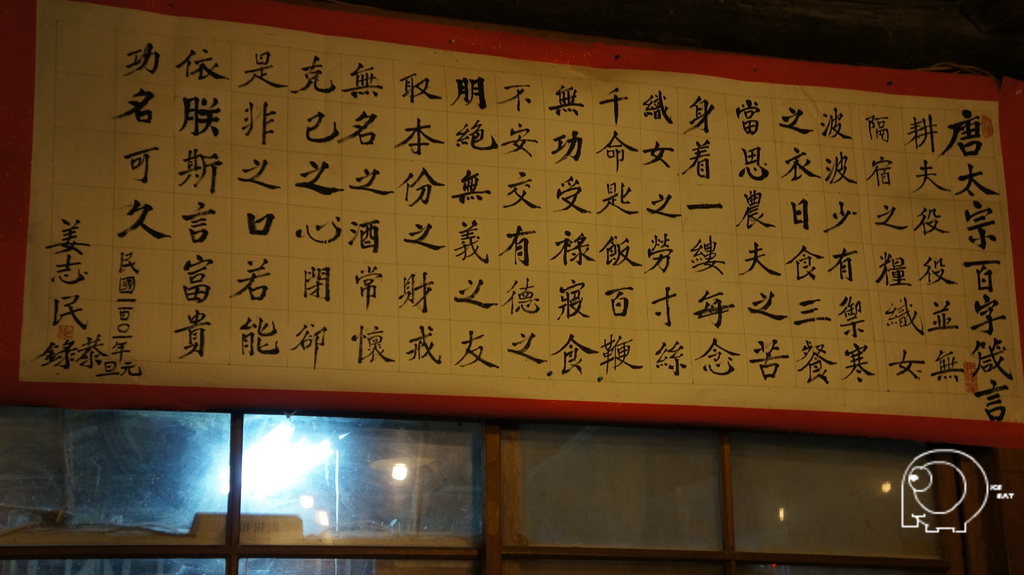 唐太宗百字箴言
耕夫役役並無
隔宿之糧織女
波波少有禦寒
之衣日食三餐
當思農夫之苦
身着一縷每念
織女之勞寸絲
千命匙飯百鞭
無功受祿寢食
不安交有德之
朋絕無義之友
取本份之財戒
無名之酒常懷
克己之心閉卻
是非之口若能
依朕斯言富貴
功名可久
民國一百0二年元旦
姜志民恭錄
ICE
EAT